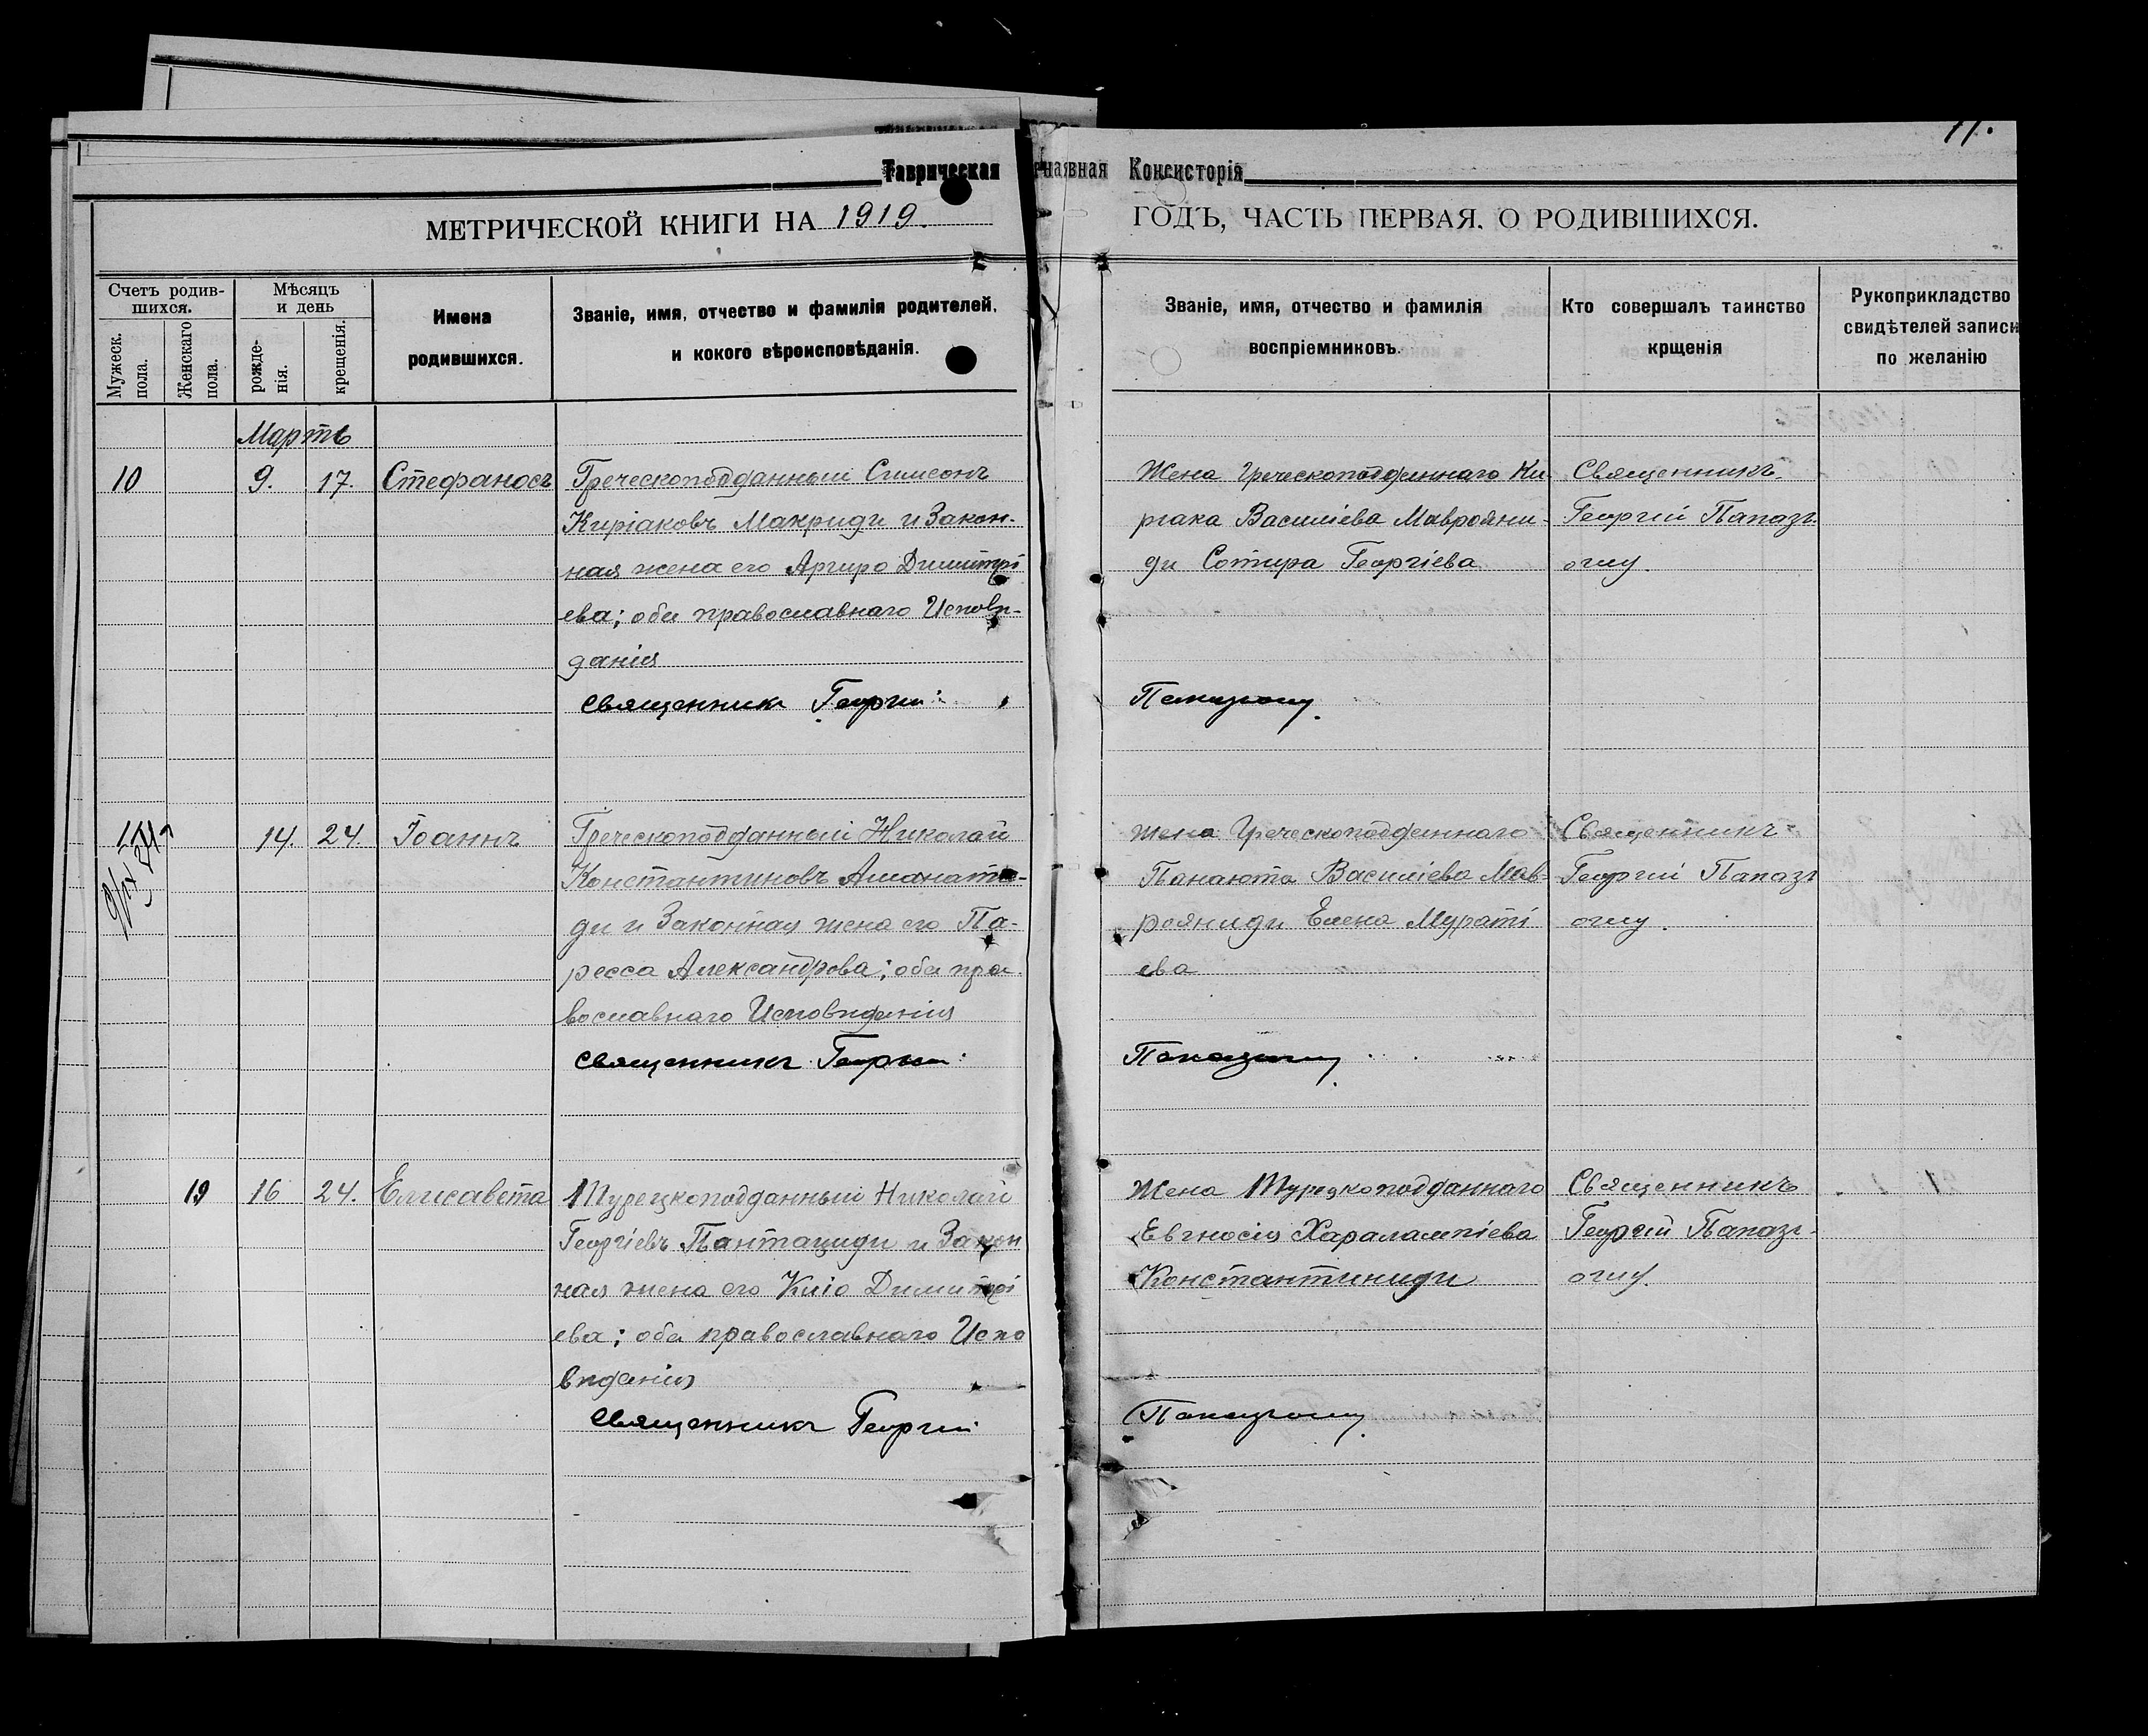 11.
Таврическая Консисторія
МЕТРИЧЕСКОЙ КНИГИ НА 1919. ГОДЪ, ЧАСТЬ ПЕРВАЯ. О РОДИВШИХСЯ.
Счетъ родив-
шихся.
Мужеск.
пола.
Женскаго
пола.
Мѣсяцъ
и день
рожде-
нія.
крещенія.
Имена
родившихся.
Званіе, имя, отчество и фамилія родителей,
и кокого вѣроисповѣданія.
Званіе, имя, отчество и фамилія
воспріемниковъ.
Кто совершалъ таинство
крщенія
Рукоприкладство
свидѣтелей записи
по желанію
Мартъ
10
9.
17.
Стефаносъ
Греческоподданный Симеонъ
Киріаковъ Макриди и Закон-
ная жена его Аргиро Димитрі
ева; оба православнаго Исповѣ-
данія
Священник Георгій
Жена Греческоподданнаго Ки-
ріака Василіева Маврояни-
ди Сотира Георгіева
Папазоглу.
Священникъ
Георгій Папазъ
оглу.
14.
24.
Іоаннъ
Греческоподданный Николай
Константиновъ Аманати-
ди и Законная жена его Па-
ресса Александрова; оба пра-
вославнаго Исповѣданія
Священникъ Георгій
Жена Греческоподданнаго
Панаюта Василіева Мав-
рояниди Елена Мураті
ева
Папазоглу.
Священникъ
Георгій Папазъ
оглу.
19
16
24.
Елисавета
Турецкоподданный Николай
Георгіевъ Пантациди и Закон
ная жена его Кліо Димитрі
ева; оба православнаго Испо
вѣданія
Священникъ Георгій
Жена Турецкоподданнаго
Евгносія Харалампіева
Константиниди
Папазоглу.
Священникъ
Георгій Папазъ-
оглу.